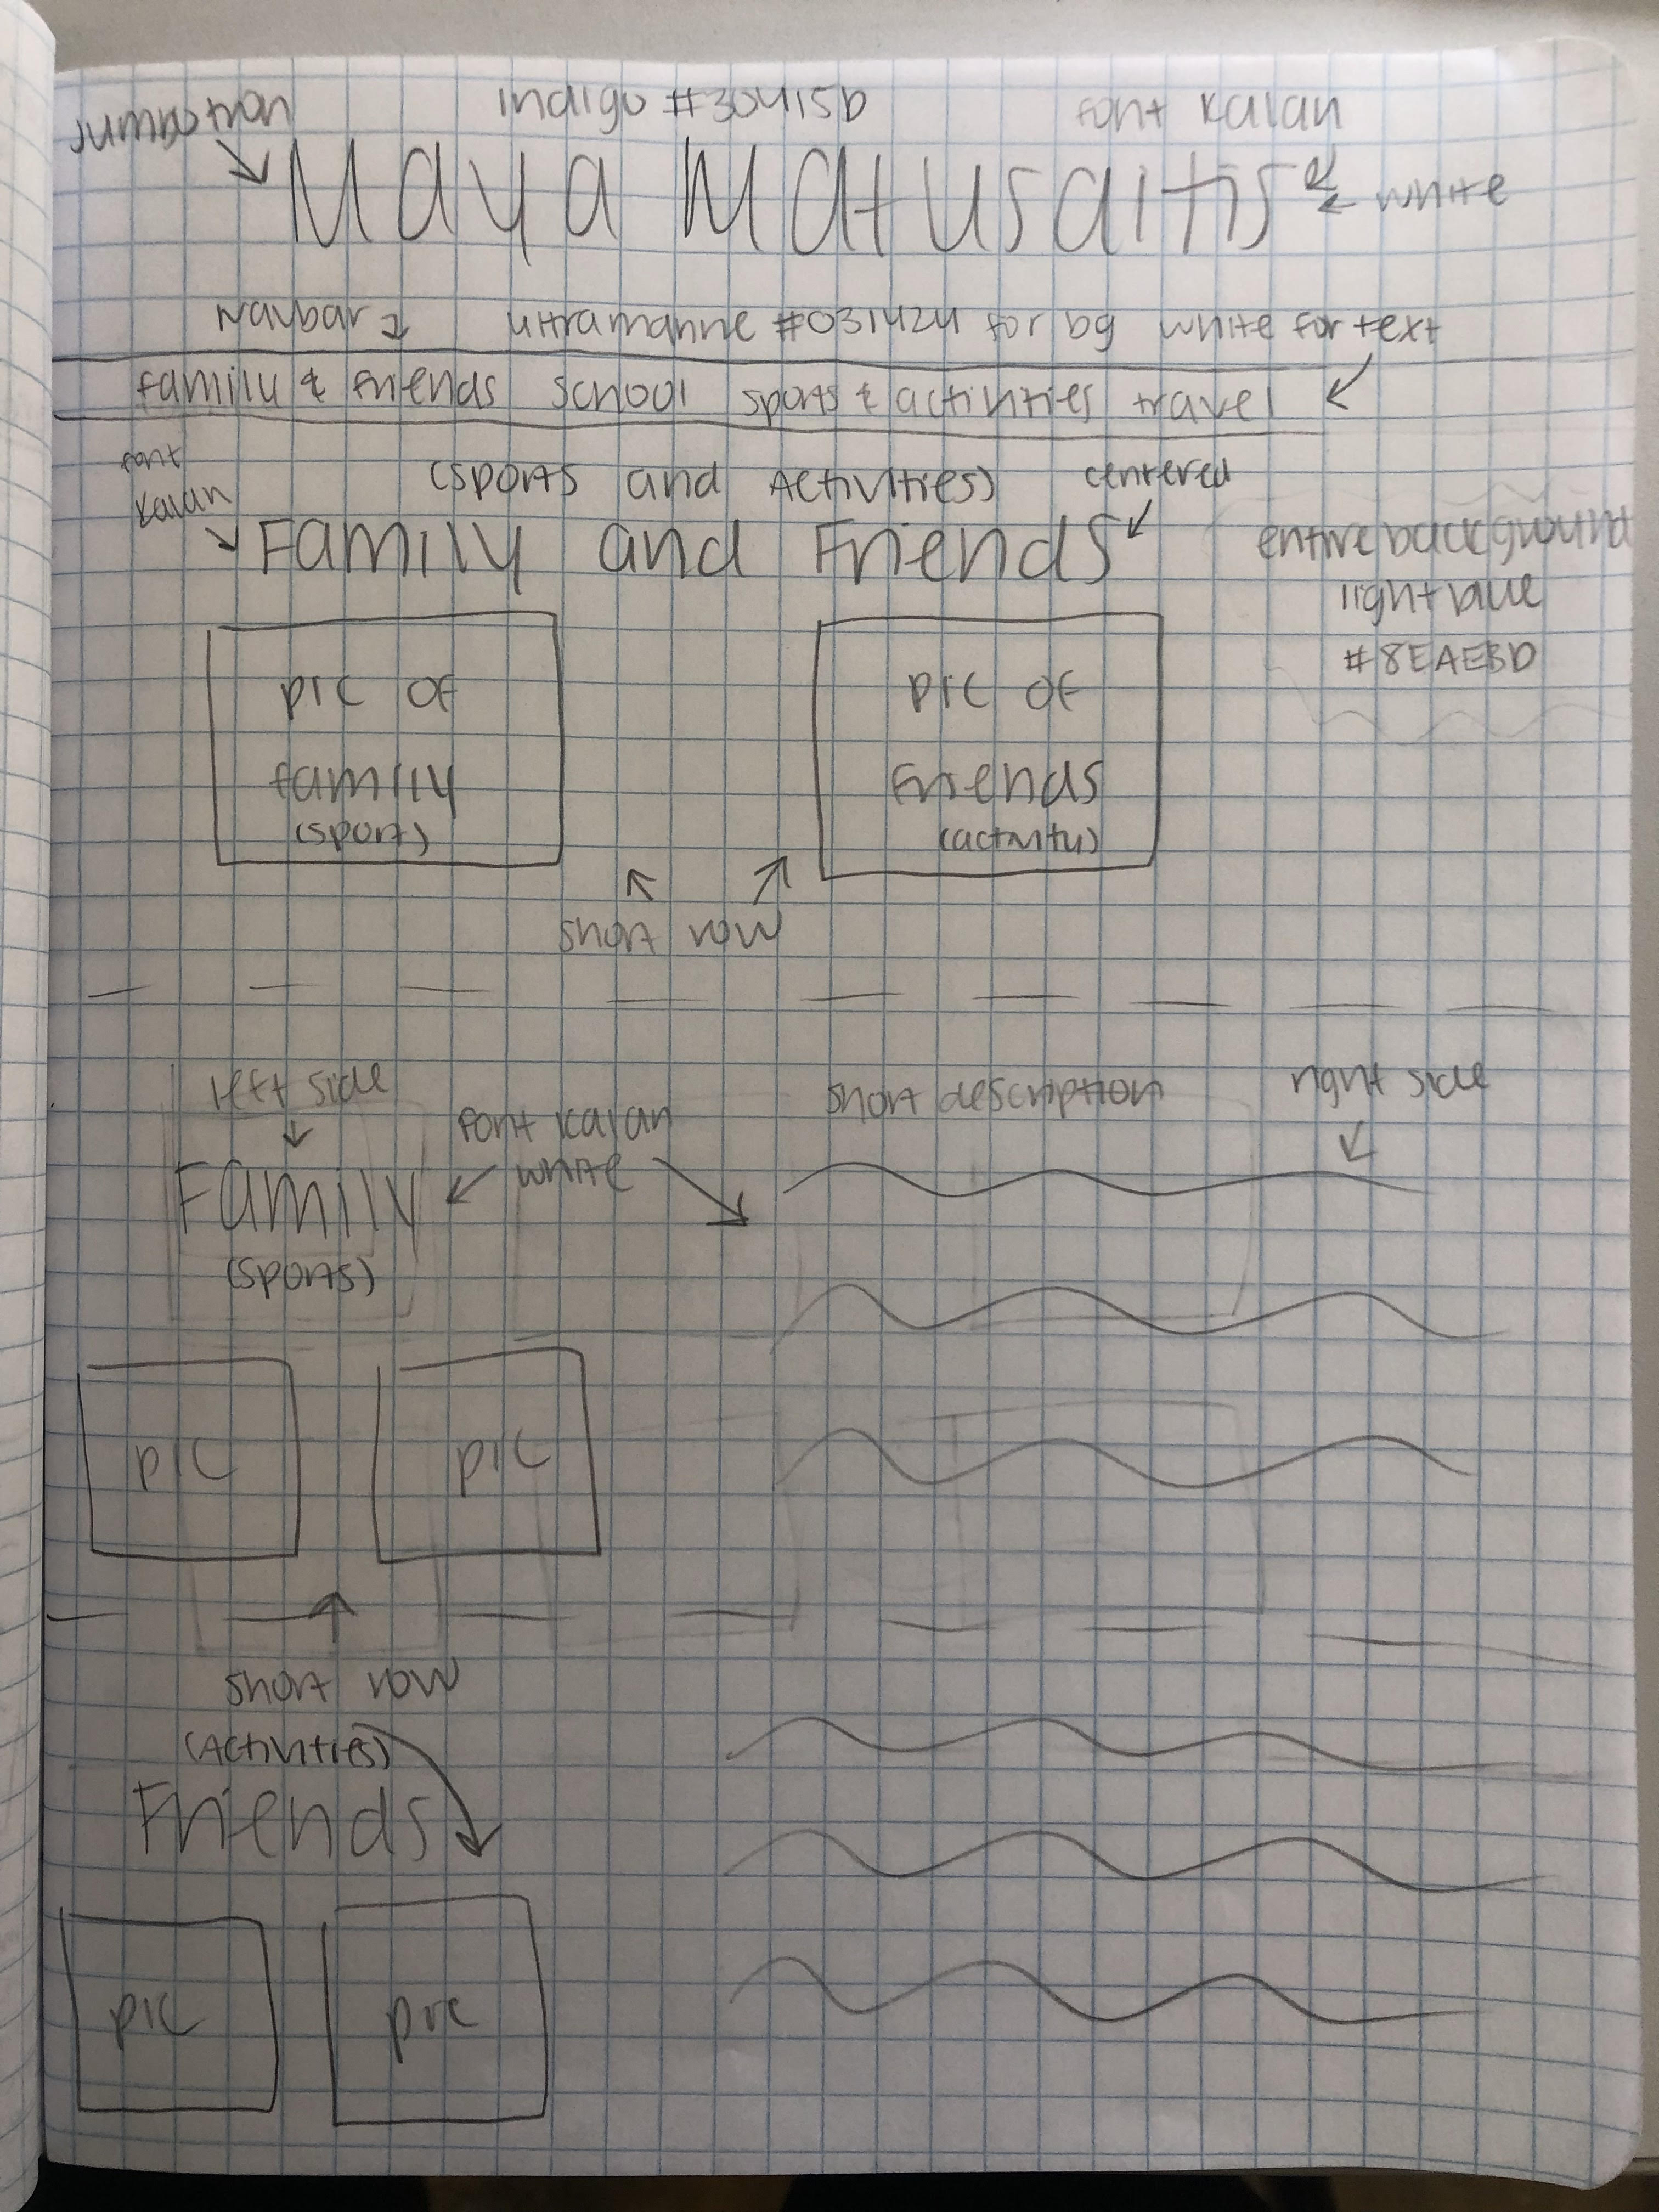 Jumbotron indigo #30415D font Kalan
Maya Matusaitis white
Navbar ultramarine #031424 for bg white for text
family & friends school sports & activities travel
font Kalan (sports and Activities) centered
Family and Friends
entire background
light blue
#8EAEBD
pic of pic of
family Friends
(sport) (activity)
short row
left side short description right side
font Kalan
white
Family
(sports)
pic pic
short row
(Activities)
Friends
pic pic